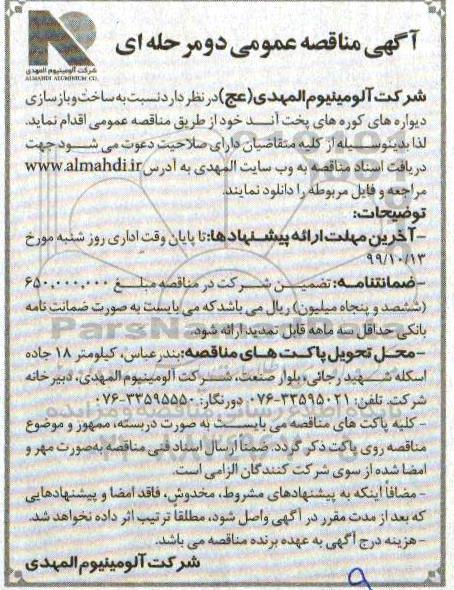 آگهی مناقصه عمومی دو مرحله ای
شرکت آلومینیوم المهدی
ALMAHDI ALUMINIUM CO.
شرکت آلومینیوم المهدی (عج) در نظر دارد نسبت به ساخت و بازسازی
دیواره های کوره های پخت آند خود از طریق مناقصه عمومی اقدام نماید.
لذا بدینوسیله از کلیه متقاضیان دارای صلاحیت دعوت می شود جهت
دریافت اسناد مناقصه به وب سایت المهدی به آدرس www.almahdi.ir
مراجعه و فایل مربوطه را دانلود نمایند.
توضیحات:
-آخرین مهلت ارائه پیشنهادها: تا پایان وقت اداری روز شنبه مورخ
۹۹/۱۰/۱۳
-ضمانتنامه: تضمین شرکت در مناقصه مبلغ ۶۵۰,۰۰۰,۰۰۰
(ششصد و پنجاه میلیون) ریال می باشد که می بایست به صورت ضمانت نامه
بانکی حداقل سه ماهه قابل تمدید ارائه شود.
-محل تحویل پاکت های مناقصه: بندرعباس، کیلومتر ۱۸ جاده
اسکله شهید رجائی، بلوار صنعت، شرکت آلومینیوم المهدی، دبیرخانه
شرکت. تلفن: ۳۳۵۹۵۰۲۱-۰۷۶ دورنگار: ۳۳۵۹۵۵۵۰-۰۷۶
- کلیه پاکت های مناقصه می بایست به صورت دربسته، ممهور و موضوع
مناقصه روی پاکت ذکر گردد. ضمنا ارسال اسناد فنی مناقصه به صورت مهر و
امضا شده از سوی شرکت کنندگان الزامی است.
- مضافاً اینکه به پیشنهادهای مشروط، مخدوش، فاقد امضا و پیشنهادهایی
که بعد از مدت مقرر در آگهی واصل شود، مطلقاً ترتیب اثر داده نخواهد شد.
-هزینه درج آگهی به عهده برنده مناقصه می باشد.
شرکت آلومینیوم المهدی
۹